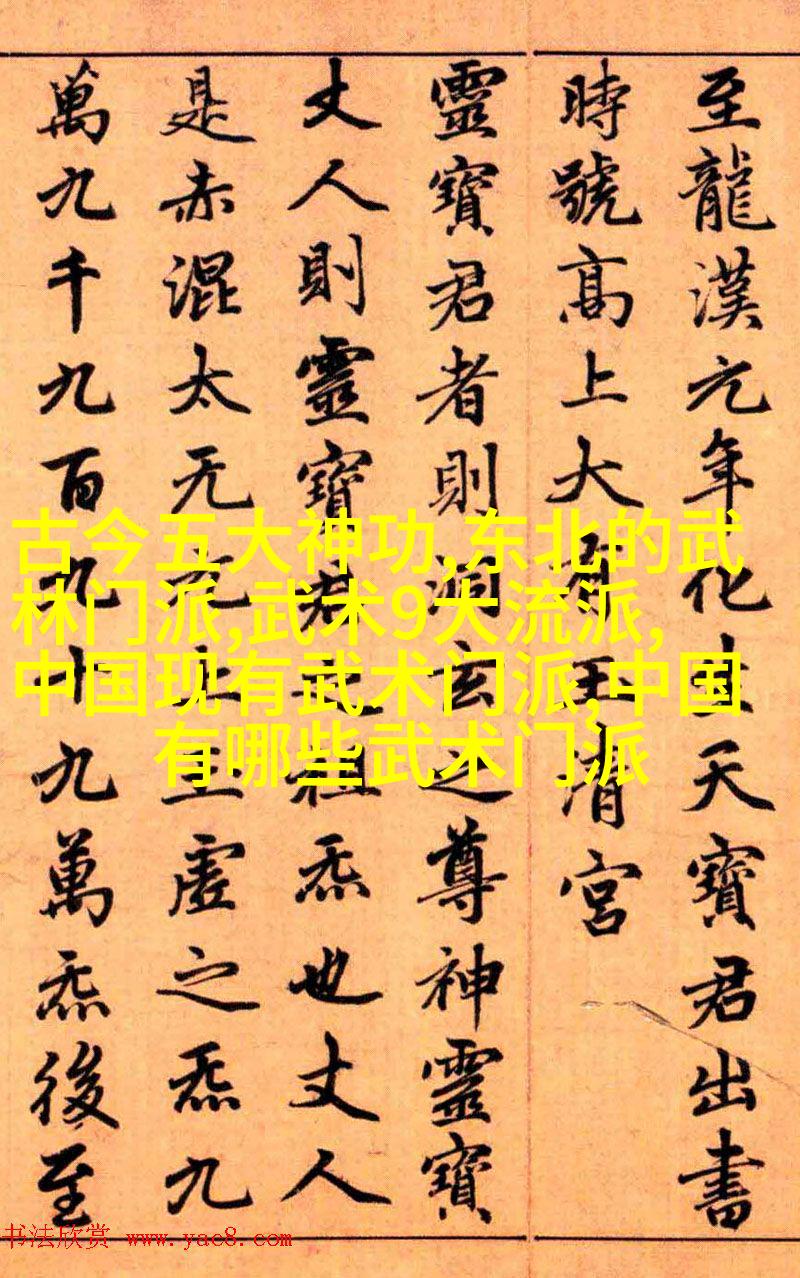 至龍漢元年化生天寶君出書
時號高上大有玉清宮
靈寶君者則洞玄之尊神靈寶
丈人則靈寶君之祖炁也丈人
是赤混太无元上玉虛之炁九
萬九千九百九十九萬炁後至
古今五大神功,东北的武
林门派,武术9大流派,
中国现有武术门派,中国
有哪些武术门派
书法欣赏 www.yac8.com